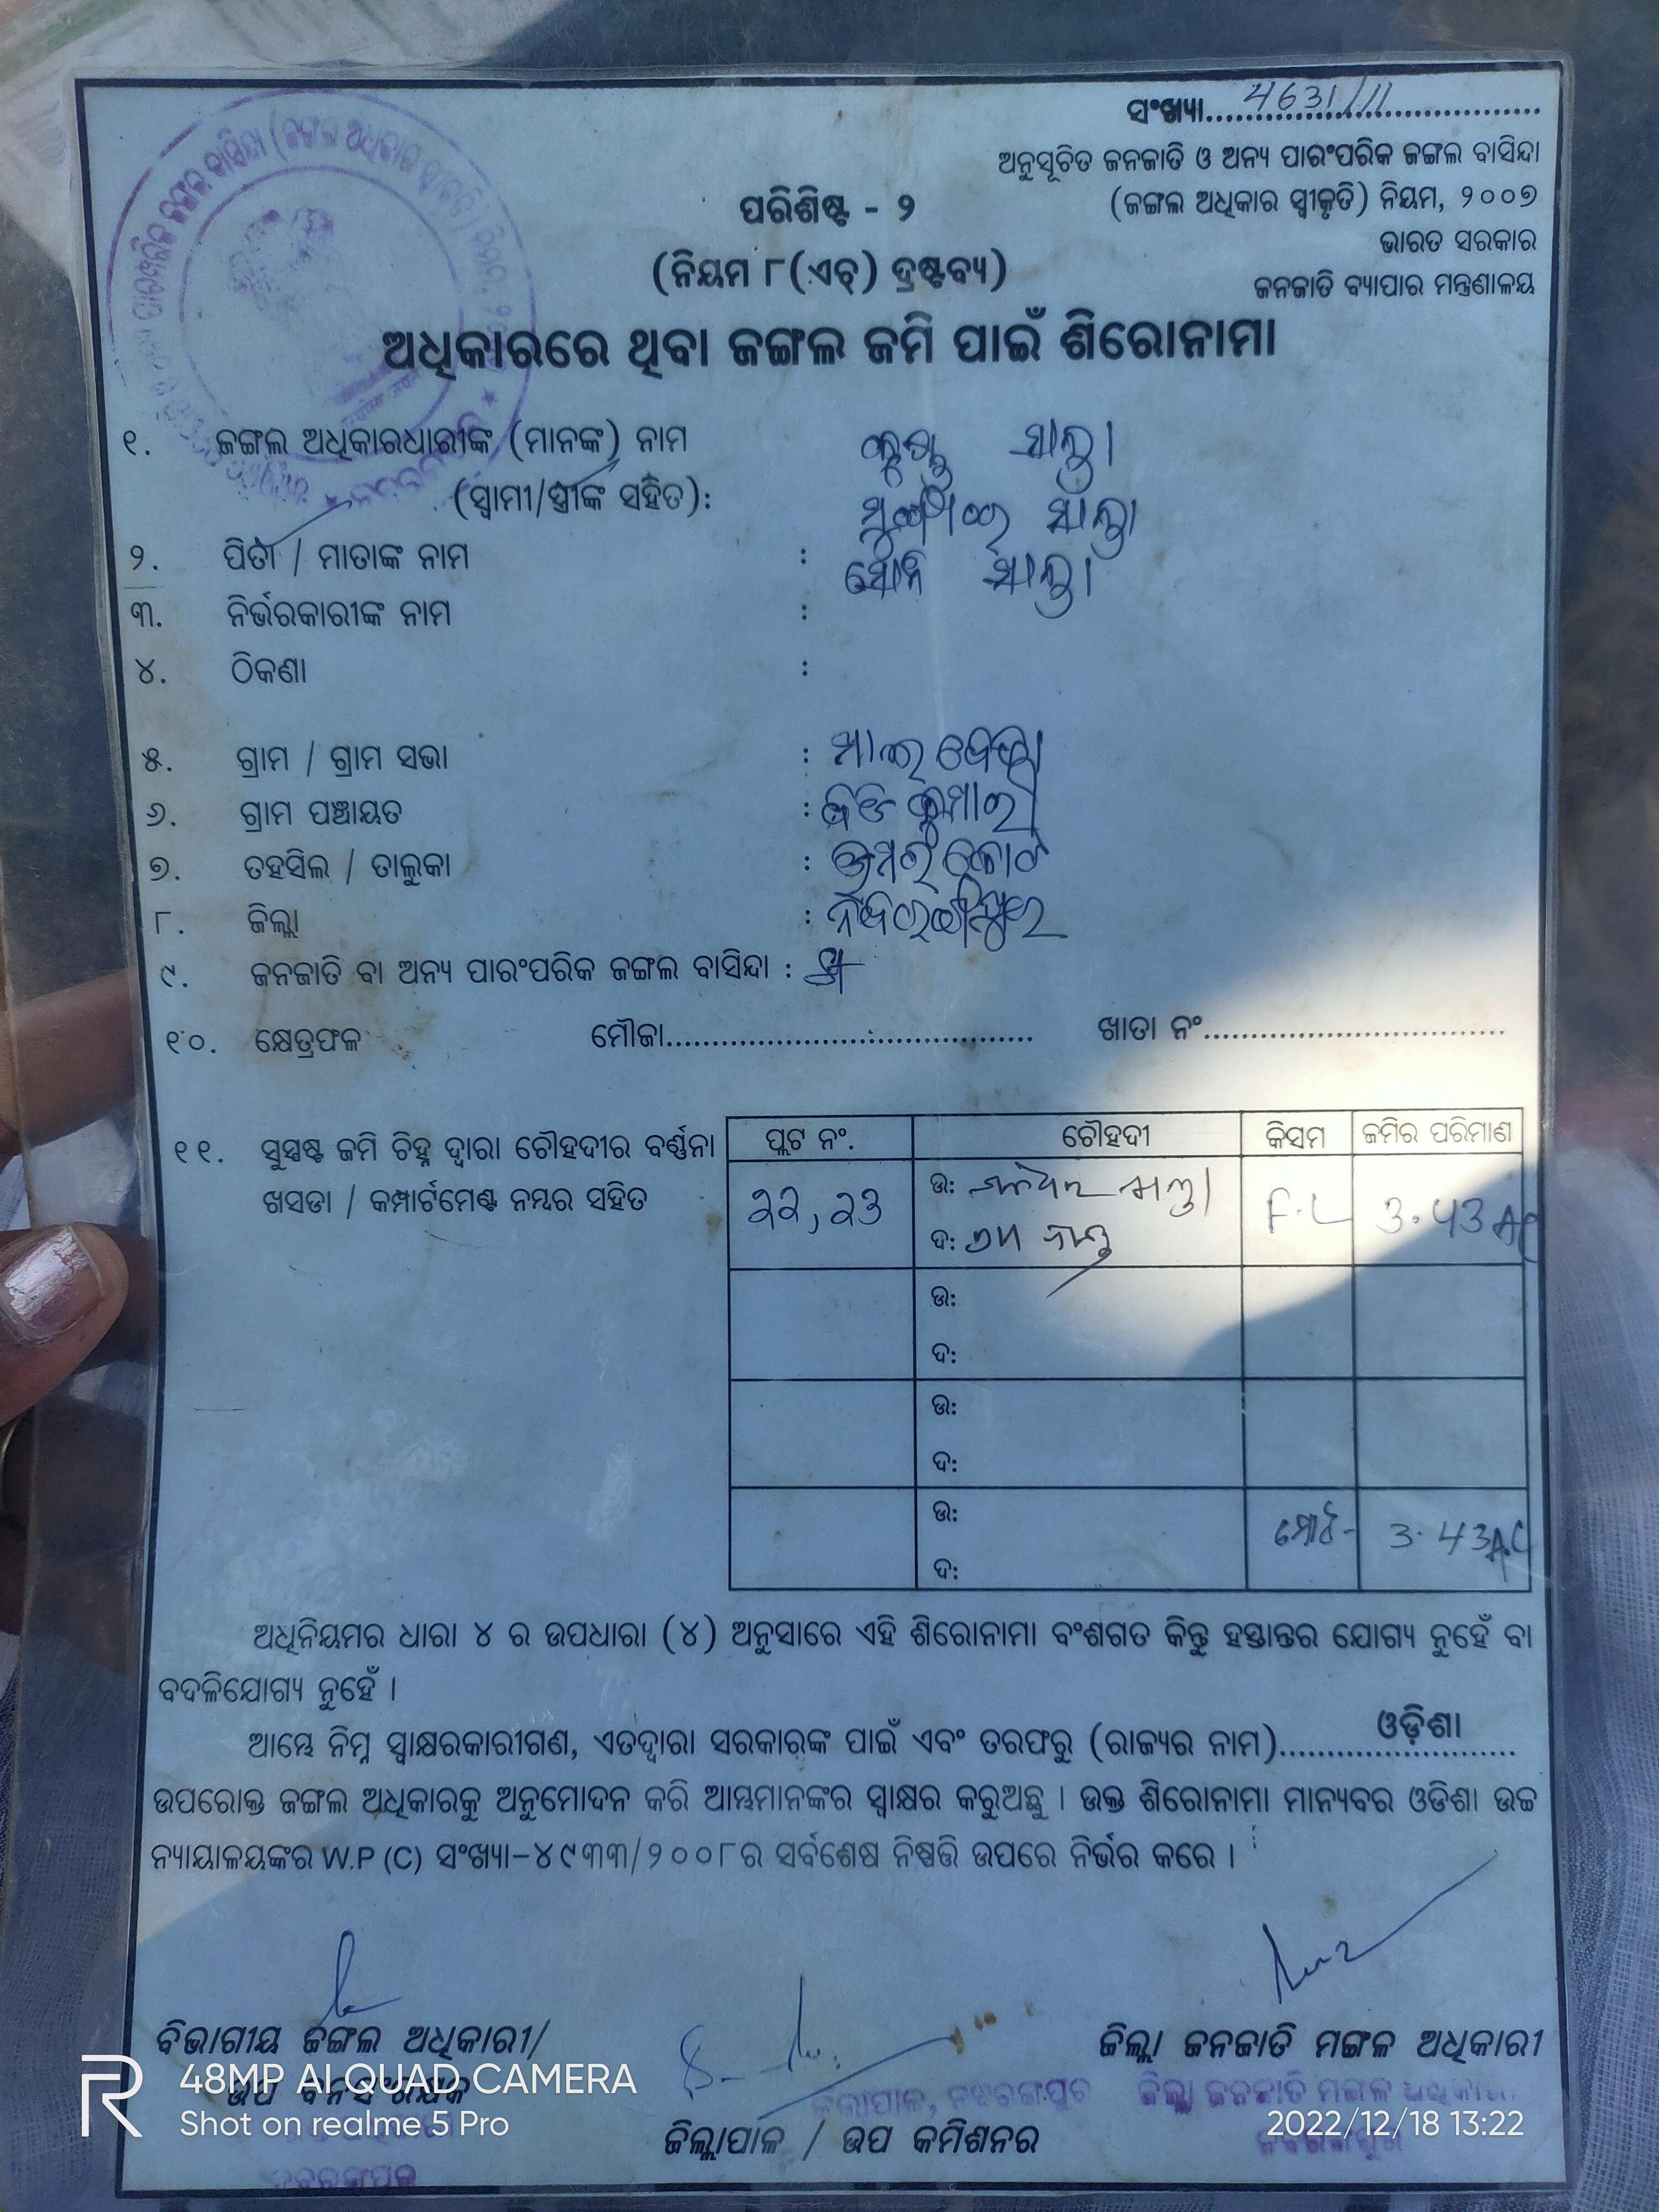 ସଂଖ୍ୟା 4631/11
ଅନୁସୂଚିତ ଜନଜାତି ଓ ଅନ୍ୟ ପାରଂପରିକ ଜଙ୍ଗଲ ବାସିନ୍ଦା
(ଜଙ୍ଗଲ ଅଧିକାର ସ୍ୱୀକୃତି) ନିୟମ, ୨୦୦୭
ଭାରତ ସରକାର
ଜନଜାତି ବ୍ୟାପାର ମନ୍ତ୍ରଣାଳୟ
ପରିଶିଷ୍ଟ - ୨
(ନିୟମ ୮(ଏଚ୍) ଦ୍ରଷ୍ଟବ୍ୟ)
ଅଧିକାରରେ ଥିବା ଜଙ୍ଗଲ ଜମି ପାଇଁ ଶିରୋନାମା
୧. ଜଙ୍ଗଲ ଅଧିକାରଧାରୀଙ୍କ (ମାନଙ୍କ) ନାମ
(ସ୍ୱାମୀ/ସ୍ତ୍ରୀଙ୍କ ସହିତ):
୨. ପିତା / ମାତାଙ୍କ ନାମ :
୩. ନିର୍ଭରକାରୀଙ୍କ ନାମ :
୪. ଠିକଣା :
୫. ଗ୍ରାମ / ଗ୍ରାମ ସଭା :
୬. ଗ୍ରାମ ପଞ୍ଚାୟତ :
୭. ତହସିଲ / ତାଲୁକା : ଉମରକୋଟ
୮. ଜିଲ୍ଲା : ନବରଙ୍ଗପୁର
୯. ଜନଜାତି ବା ଅନ୍ୟ ପାରଂପରିକ ଜଙ୍ଗଲ ବାସିନ୍ଦା :
୧୦. କ୍ଷେତ୍ରଫଳ ମୌଜା ଖାତା ନଂ
୧୧. ସୁସ୍ପଷ୍ଟ ଜମି ଚିହ୍ନ ଦ୍ୱାରା ଚୌହଦୀର ବର୍ଣ୍ଣନା
ଖସଡା / କମ୍ପାର୍ଟମେଣ୍ଟ ନମ୍ବର ସହିତ
ପ୍ଲଟ ନଂ. ଚୌହଦୀ କିସମ ଜମିର ପରିମାଣ
22, 23 ଉ: F.L 3.43 AC
ଦ:
ଉ:
ଦ:
ଉ:
ଦ:
ଉ: ମୋଟ- 3.43 A.C
ଦ:
ଅଧିନିୟମର ଧାରା ୪ ର ଉପଧାରା (୪) ଅନୁସାରେ ଏହି ଶିରୋନାମା ବଂଶଗତ କିନ୍ତୁ ହସ୍ତାନ୍ତର ଯୋଗ୍ୟ ନୁହେଁ ବା
ବଦଳିଯୋଗ୍ୟ ନୁହେଁ ।
ଆମ୍ଭେ ନିମ୍ନ ସ୍ୱାକ୍ଷରକାରୀଗଣ, ଏତଦ୍ୱାରା ସରକାରଙ୍କ ପାଇଁ ଏବଂ ତରଫରୁ (ରାଜ୍ୟର ନାମ) ଓଡ଼ିଶା
ଉପରୋକ୍ତ ଜଙ୍ଗଲ ଅଧିକାରକୁ ଅନୁମୋଦନ କରି ଆମ୍ଭମାନଙ୍କର ସ୍ୱାକ୍ଷର କରୁଅଛୁ । ଉକ୍ତ ଶିରୋନାମା ମାନ୍ୟବର ଓଡିଶା ଉଚ୍ଚ
ନ୍ୟାୟାଳୟଙ୍କର W.P (C) ସଂଖ୍ୟା-୪୯୩୩/୨୦୦୮ର ସର୍ବଶେଷ ନିଷ୍ପତ୍ତି ଉପରେ ନିର୍ଭର କରେ ।
ବିଭାଗୀୟ ଜଙ୍ଗଲ ଅଧିକାରୀ/
ଉପ ବନସଂରକ୍ଷକ
ଜିଲ୍ଲା ଜନଜାତି ମଙ୍ଗଳ ଅଧିକାରୀ
ଜିଲ୍ଲା ଜନଜାତି ମଙ୍ଗଳ ଅଧିକାରୀ
ନବରଙ୍ଗପୁର
ଜିଲ୍ଲାପାଳ, ନବରଙ୍ଗପୁର
ଜିଲ୍ଲାପାଳ / ଉପ କମିଶନର
48MP AI QUAD CAMERA
Shot on realme 5 Pro
2022/12/18 13:22